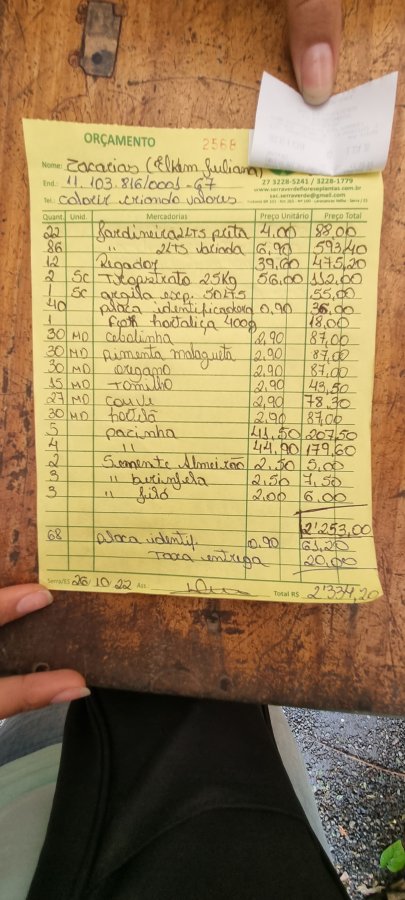 ORÇAMENTO 2568
Nome: Zacarias (Elhem Juliana)
End.: 11.103.816/0001-67
Tel.: colorir criando valores
27 3228-5241 / 3228-1779
www.serraverdefloreseplantas.com.br
sac.serraverde@gmail.com
Quant. Unid. Mercadorias Preço Unitário Preço Total
22 Jardineira 24TS preta 4,00 88,00
86 " 24TS variada 6,90 593,40
12 Regador 39,60 475,20
2 SC 25Kg 56,00 112,00
1 SC argila exp. 50LTS 55,00
40 placa identificadora 0,90 36,00
1 hortaliça 400g 18,00
30 MD cebolinha 2,90 87,00
30 MD Pimenta malagueta 2,90 87,00
30 MD oregano 2,90 87,00
15 MD Tomilho 2,90 43,50
27 MD couve 2,90 78,30
30 MD hortelã 2,90 87,00
5 pazinha 41,50 207,50
4 " 44,90 179,60
2 Semente Almeirão 2,50 5,00
3 " berinjela 2,50 7,50
3 " jiló 2,00 6,00
2'253,00
68 placa identif. 0,90 61,20
Taxa entrega 20,00
Serra/ES 26/10/22 Ass. Total R$ 2'334,20